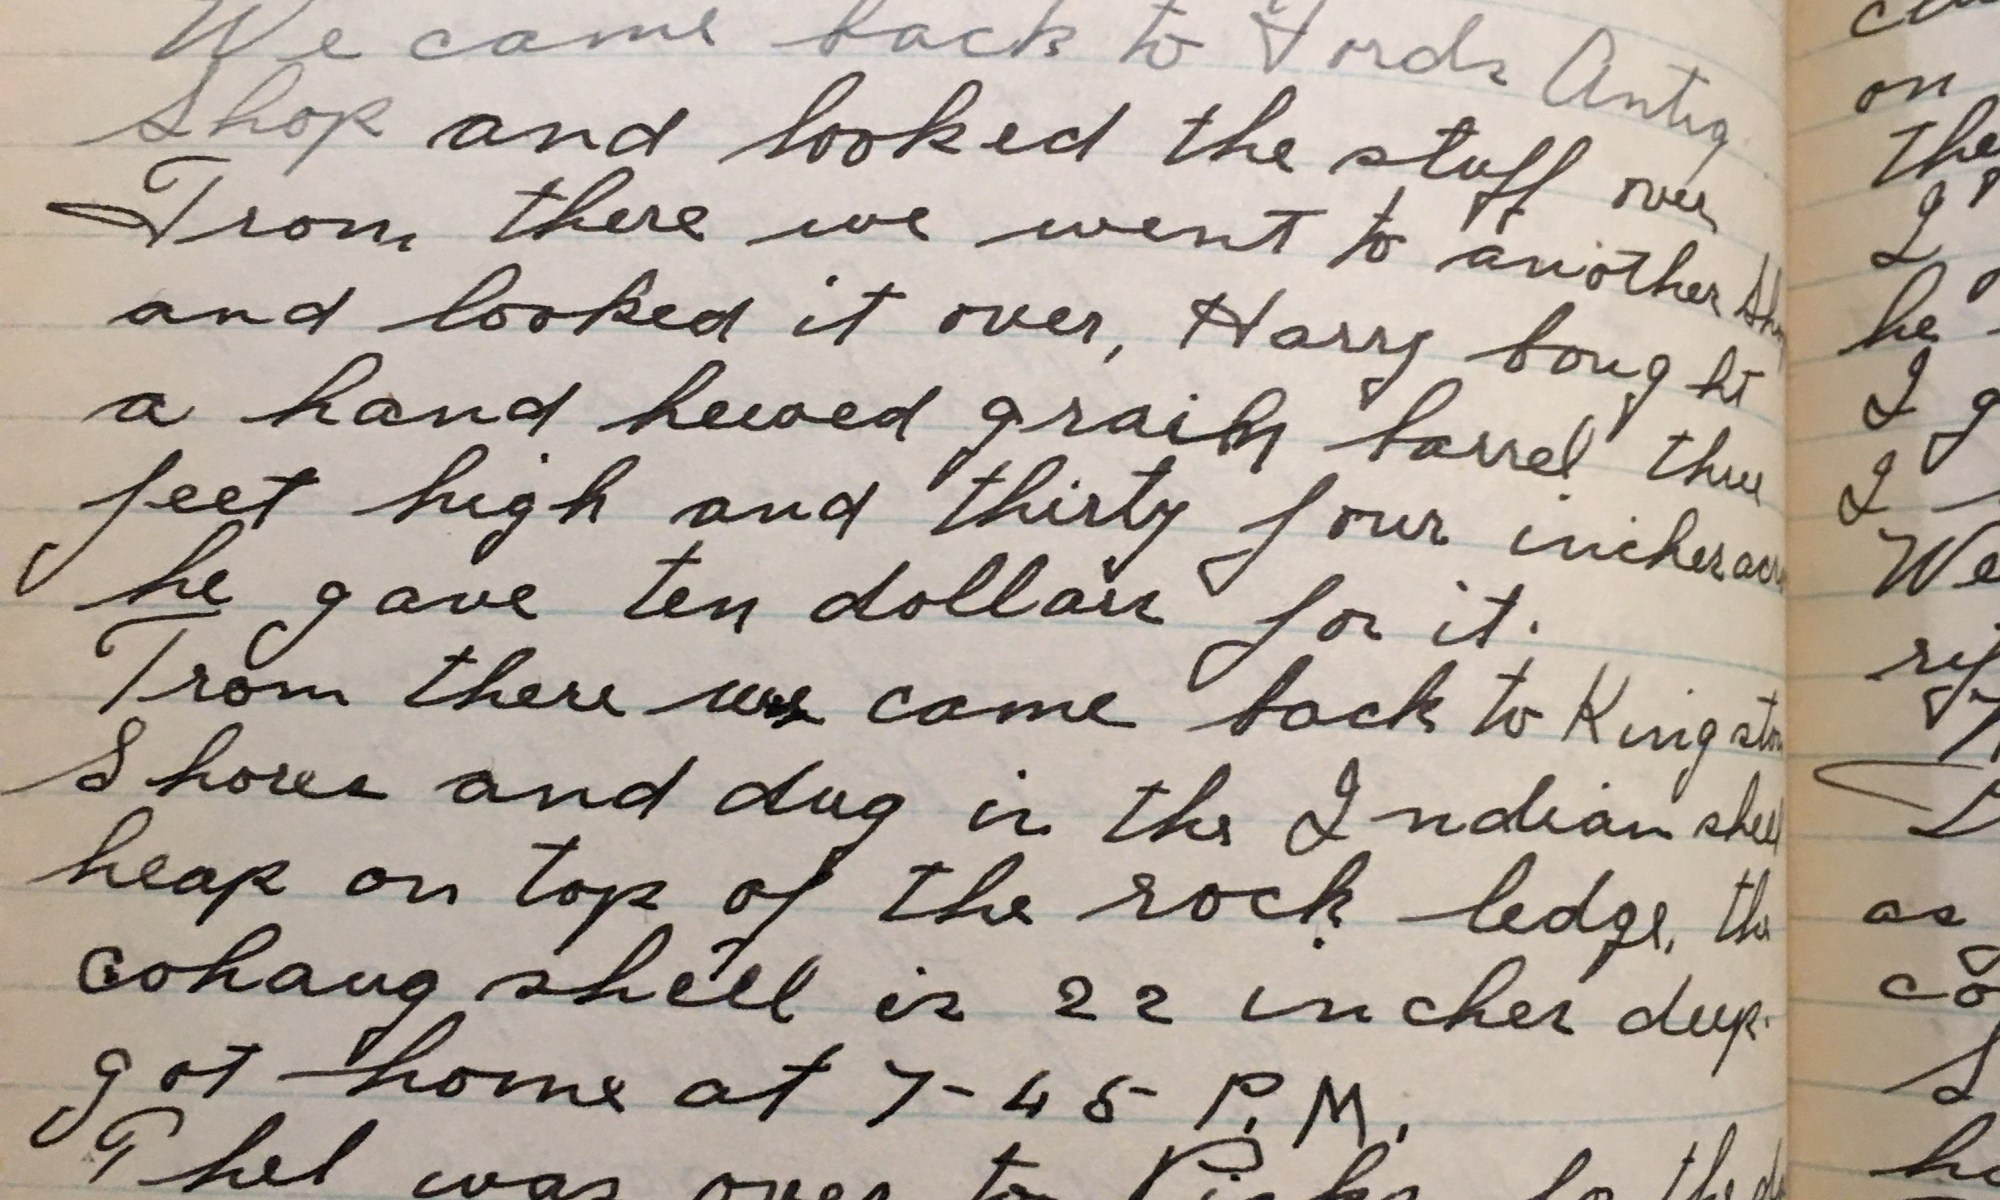 We came back to Fords Antiq
Shop and looked the stuff over
From there we went to another Sho
and looked it over, Harry bought
a hand hewed grain barrel three
feet high and thirty four inches acr
he gave ten dollars for it.
From there we came back to Kingston
Shores and dug in the Indian shell
heap on top of the rock ledge, the
cohaug shell is 22 inches deep.
got home at 7-45 P.M.
Thel was over to
on
the
I
he
I g
I
We
as
co
S